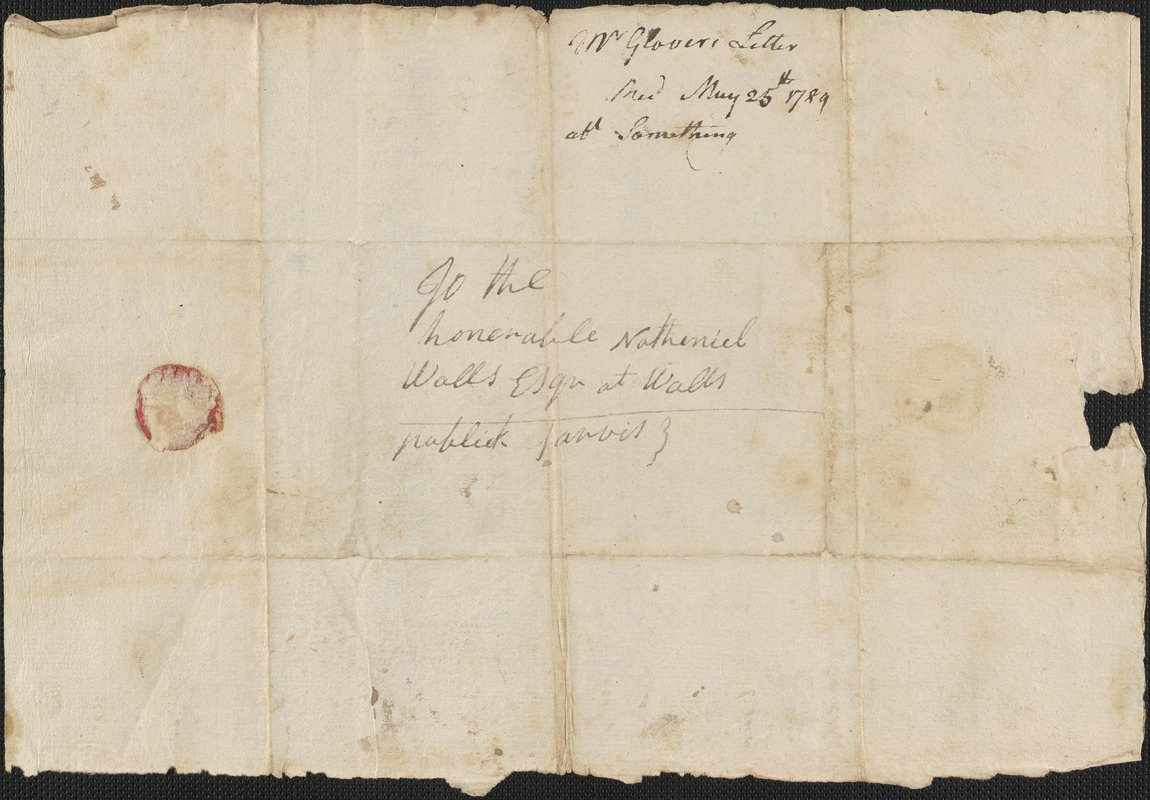 Mr Glovers Letter
Recd May 25th 1789
abt Something
To the
honerable Natheniel
Walls Esqr at Walls
publick Sarvis }